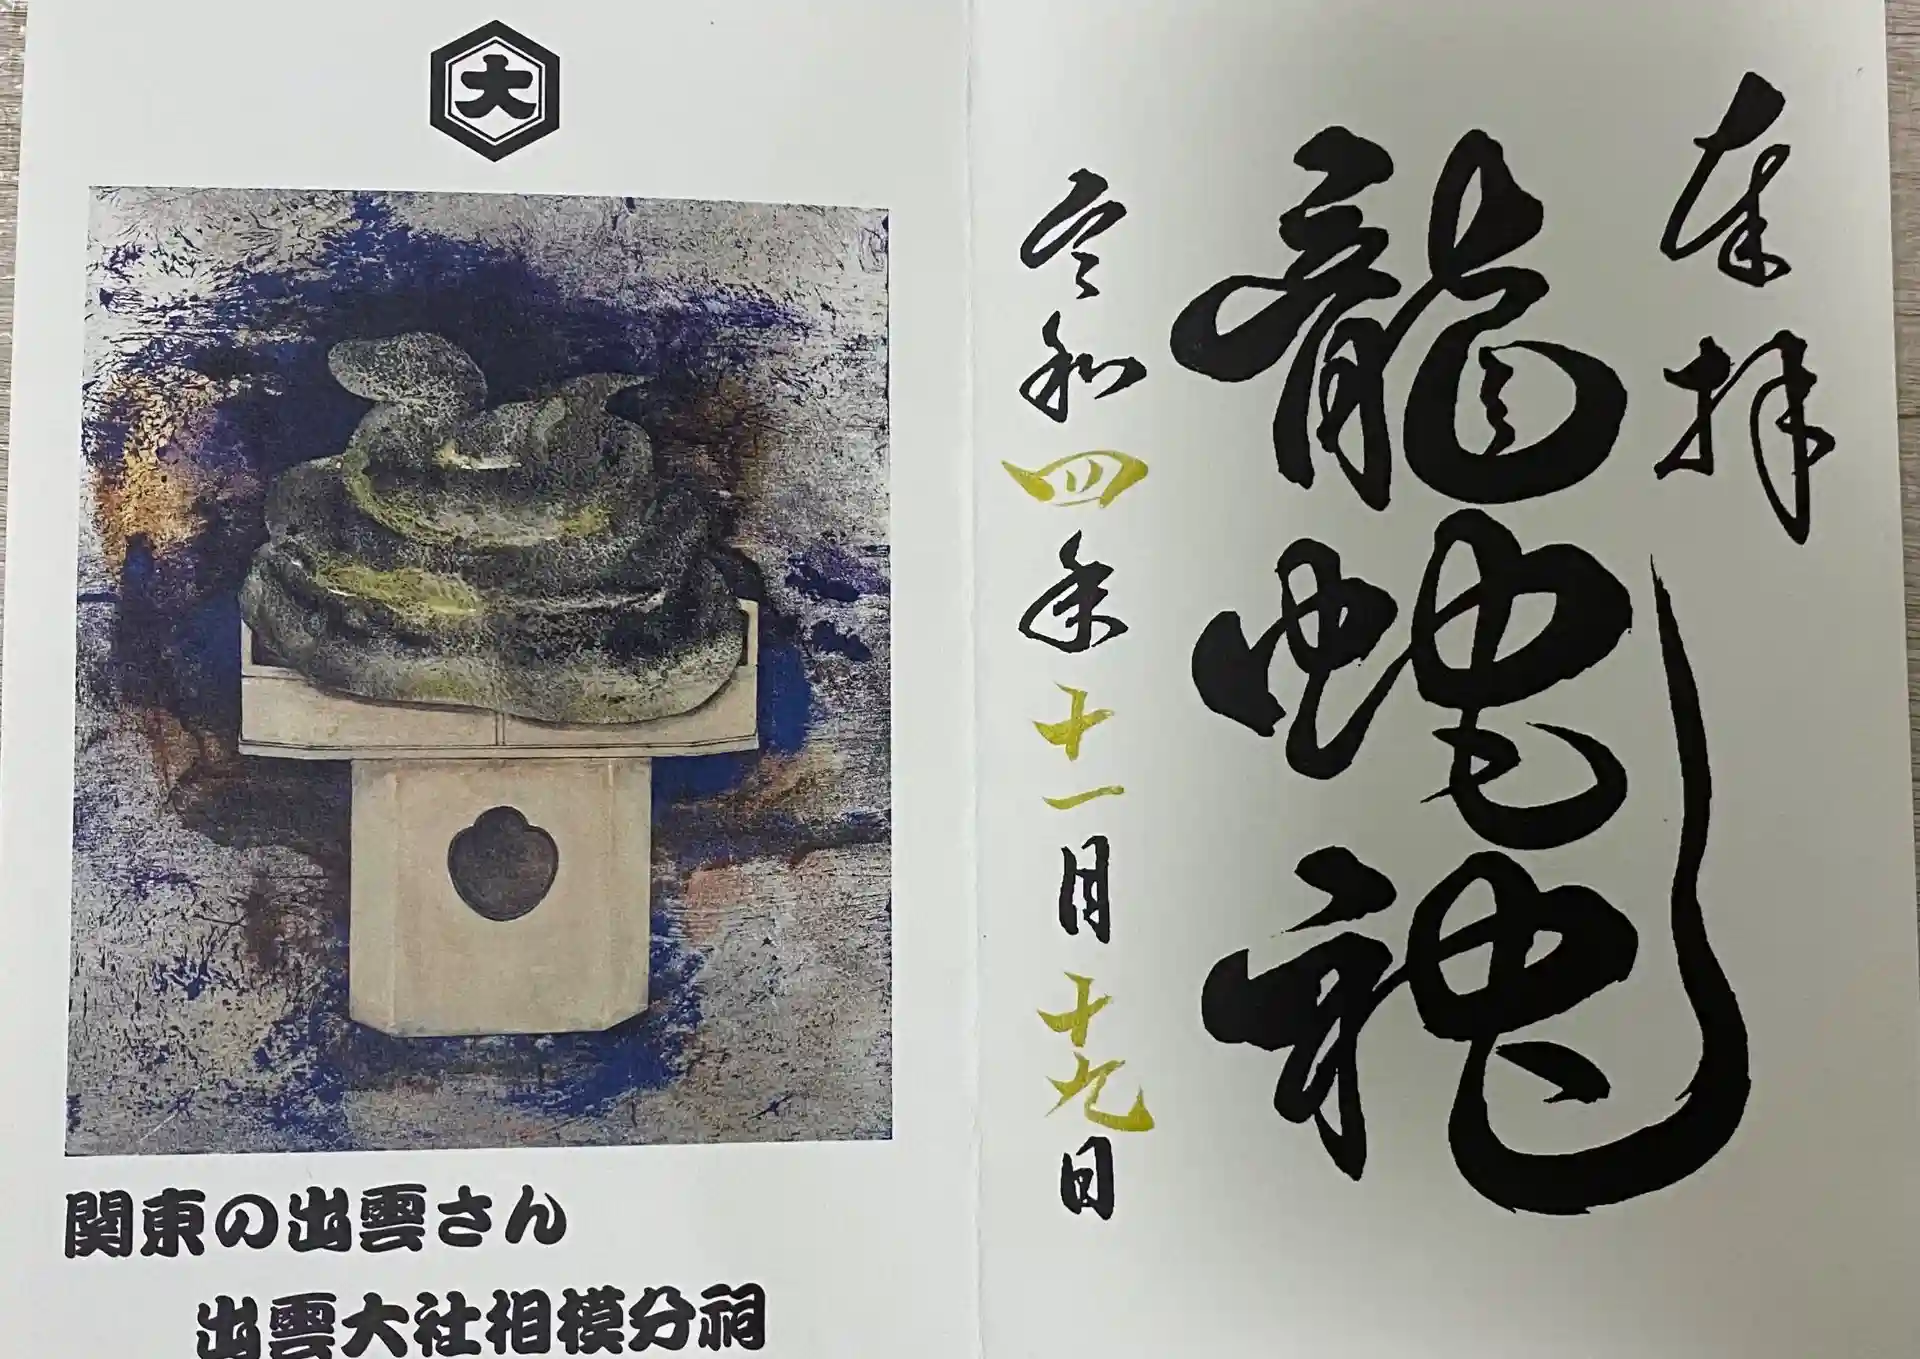 奉拝
龍蛇神
令和四年十一月十九日
大
関東の出雲さん
出雲大社相模分祠